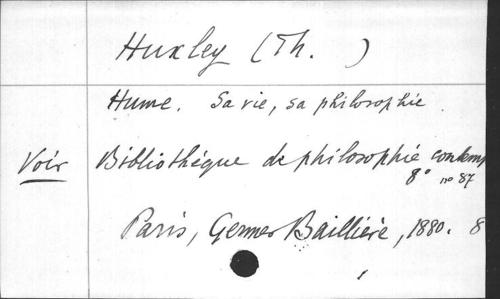 Huxley (Th. )
Hume. Sa vie, sa philosophie
Voir Bibliothèque de philosophie contemp
8° no 87
Paris, Germer Baillière, 1880. 8